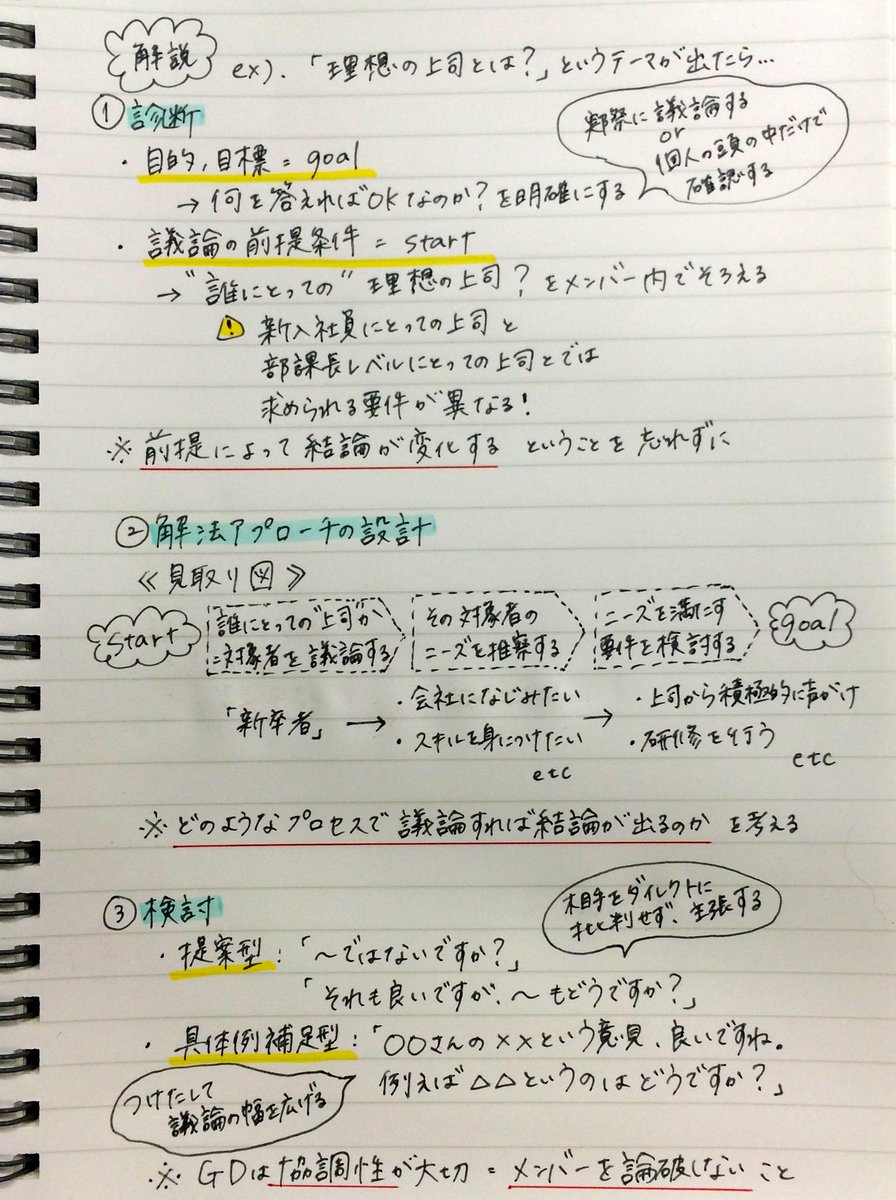 解説
ex).「理想の上司とは?」というテーマが出たら…
① 診断
実際に議論する
or
個人の頭の中だけで
確認する
・目的,目標 = goal
→ 何を答えればOKなのか?を明確にする
・議論の前提条件 = start
→ "誰にとっての" 理想の上司?をメンバー内でそろえる
新入社員にとっての上司と
部課長レベルにとっての上司とでは
求められる要件が異なる!
※ 前提によって結論が変化する ということを忘れずに
② 解法アプローチの設計
≪見取り図≫
start
誰にとっての"上司"か
対象者を議論する
その対象者の
ニーズを推察する
ニーズを満たす
要件を検討する
goal
「新卒者」→
・会社になじみたい
・スキルを身につけたい
etc
→
・上司から積極的に声がけ
・研修を行う
etc
※ どのようなプロセスで議論すれば結論が出るのか を考える
③ 検討
相手をダイレクトに
批判せず、主張する
・提案型:「〜ではないですか?」
「それも良いですが、〜もどうですか?」
・具体例補足型:「○○さんの××という意見、良いですね。
例えば△△というのはどうですか?」
つけたして
議論の幅を広げる
※ GDは協調性が大切 = メンバーを論破しないこと